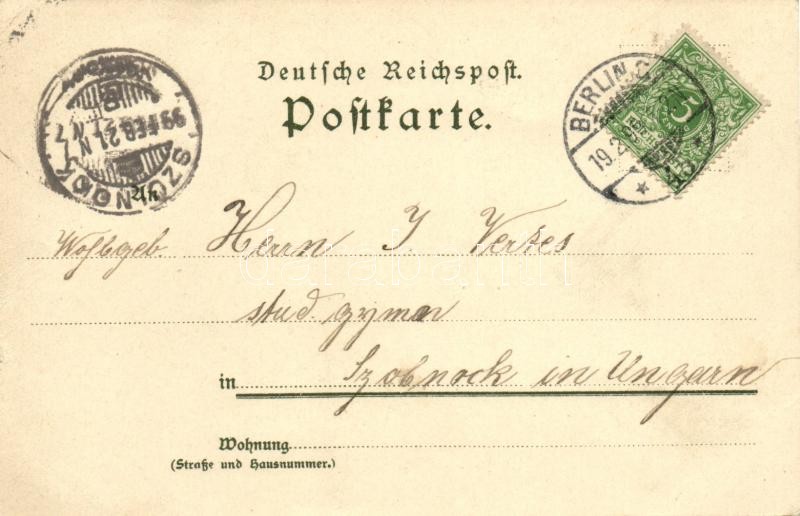 Deutsche Reichspost.
Postkarte.
SZOLNOK
99 FEB. 21. N 7
BERLIN.C.
19.2
5
An
Wohlgeb. Herrn J Vertes
stud. gymn
in Szobnock in Ungarn
Wohnung
(Straße und Hausnummer.)
darabanth